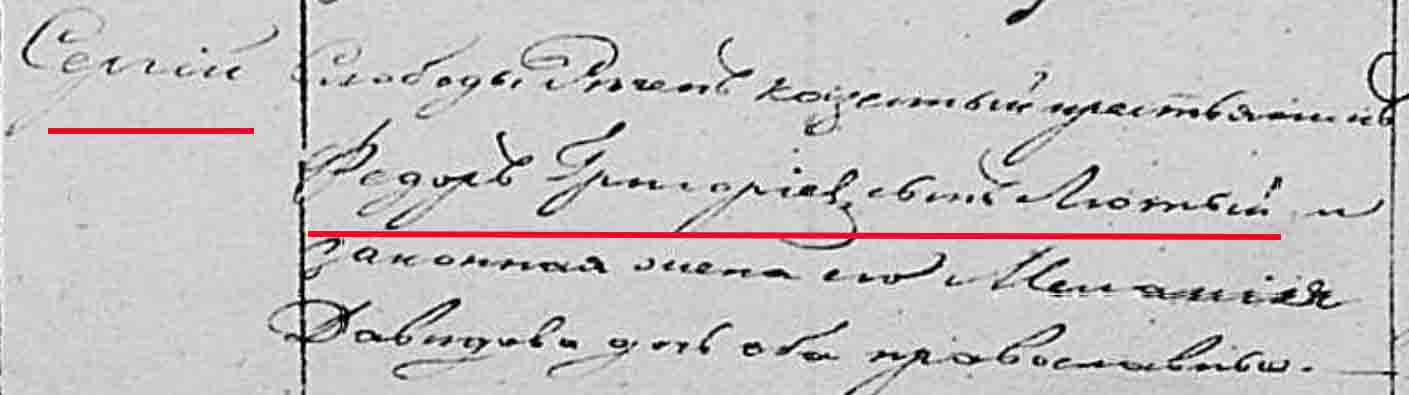 Сергій
Слободы Рѣчекъ казенный крестьянинъ
Федоръ Григоріевъ сынъ Лютый и
законная жена его Меланія
Давидова дочь оба православны.